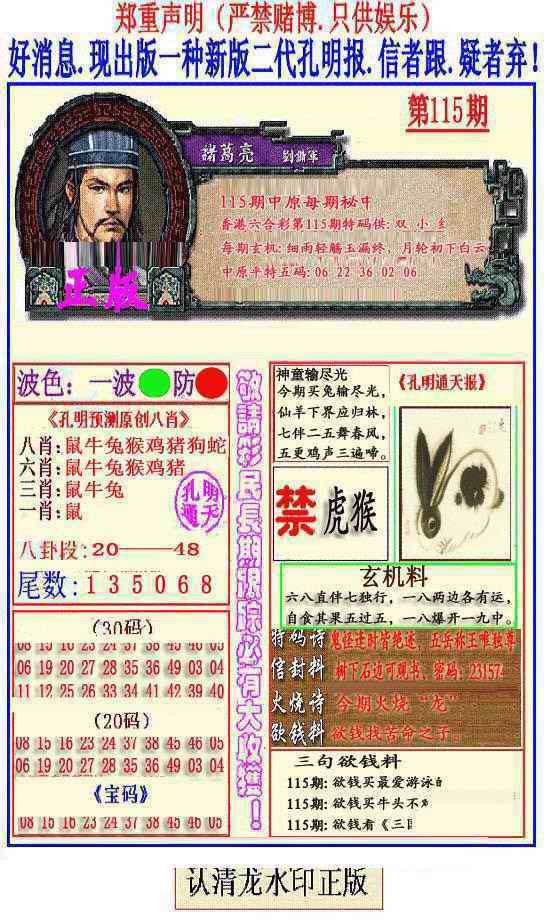 郑重声明（严禁赌博.只供娱乐）
好消息.现出版一种新版二代孔明报.信者跟.疑者弃!
第115期
諸葛亮 劉鐤軍
115期中原每期秘中
香港六合彩第115期特码供: 双 小
每期玄机: 细雨轻觞玉漏终, 月轮初下白云
中原平特五码: 06 22 36 02 06
正版
波色: 一波 防
《孔明预测原创八肖》
八肖:鼠牛兔猴鸡猪狗蛇
六肖:鼠牛兔猴鸡猪
三肖:鼠牛兔
一肖:鼠
孔明通天
八卦段:20——48
尾数:135068
(30码)
08 15 16 23 24 37 38 45 46 05
06 19 20 27 28 35 36 49 04 09
11 12 25 26 33 34 41 42 39 40
(20码)
08 15 16 23 24 37 38 45 46 05
06 19 20 27 28 35 36 49 04 09
《宝码》
08 15 16 23 24 37 38 45 46 05
敬請彩民長期跟踪必有大收獲！
神童输尽光
今期买兔输尽光,
仙羊下界应归林,
七伴二五舞春风,
五更鸡声三遍啼。
《孔明通天报》
禁 虎猴
玄机料
六八直伴七独行, 一八两边各有运,
自食其果五过五, 一八爆开一九中。
特码诗 鬼怪逢时皆绝迹, 五岳称王唯独尊
信封料 树下石边可观书。密码: 231574
火烧诗 今期火烧“龙”
欲钱料 欲钱找苦命之子。
三句欲钱料
115期: 欲钱买最爱游泳
115期: 欲钱买牛头不
115期: 欲钱看《三
认清龙水印正版